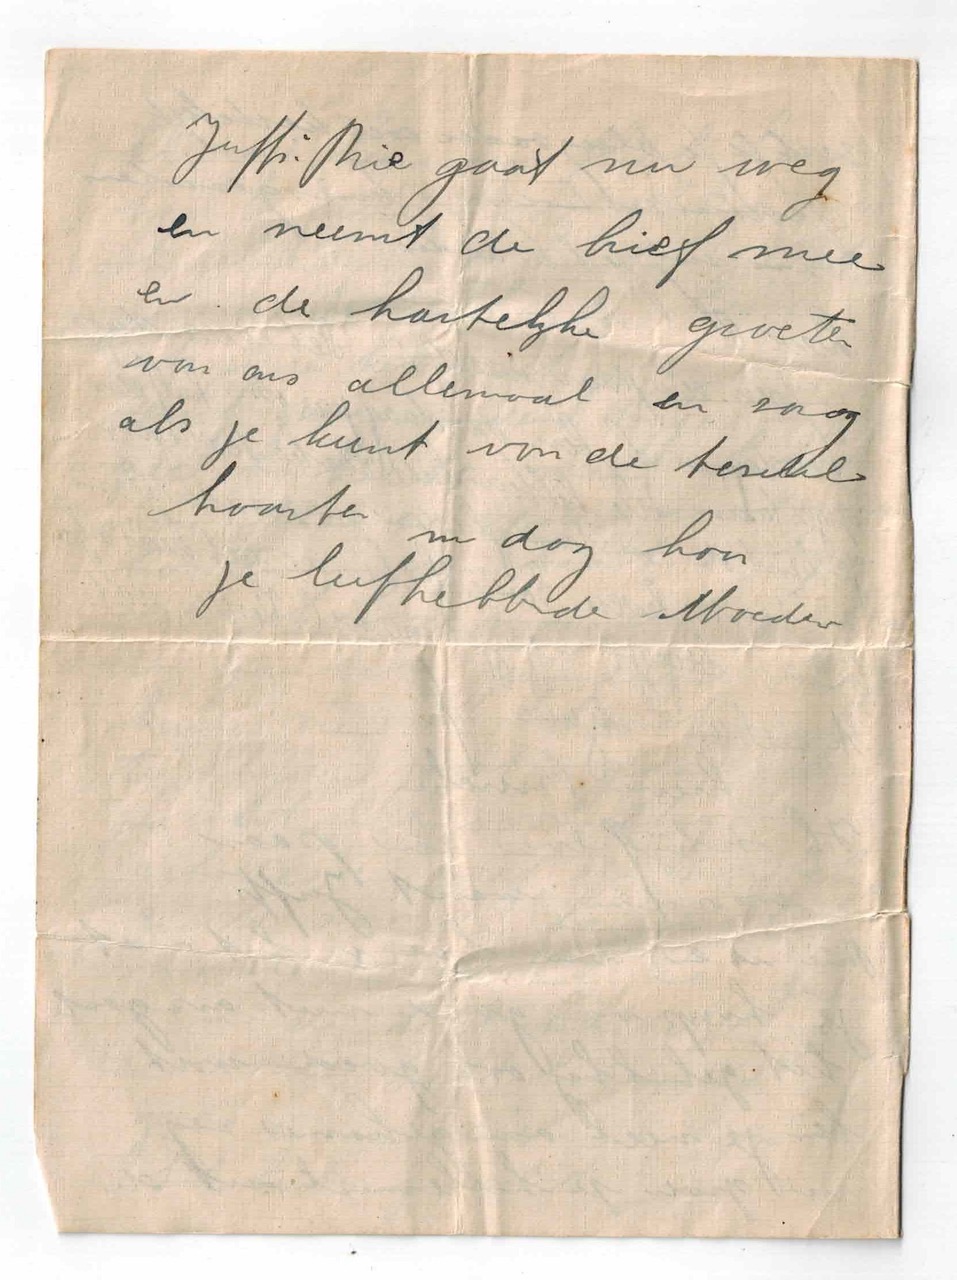 Juffr. Rie gaat nu weg
en neemt de brief mee
en de hartelijke groeten
van ons allemaal en
als je kunt van de
kaarten dag hoor
je liefhebbende Moeder